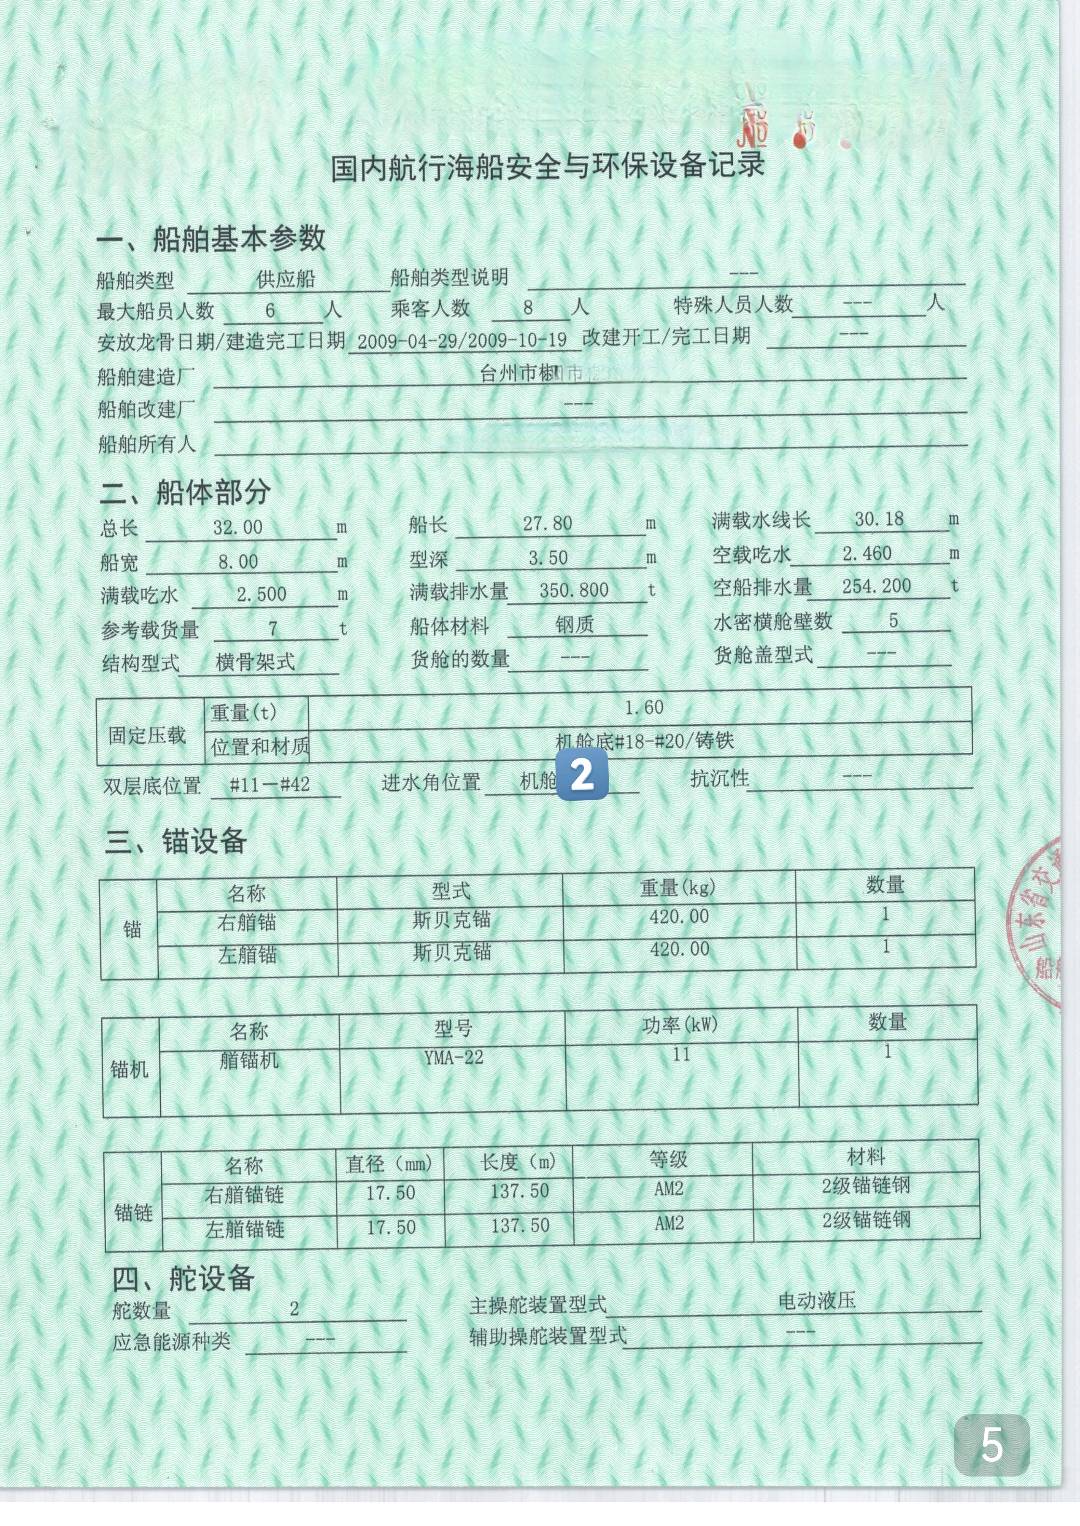 国内航行海船安全与环保设备记录
一、船舶基本参数
船舶类型 供应船 船舶类型说明 ---
最大船员人数 6 人 乘客人数 8 人 特殊人员人数 --- 人
安放龙骨日期/建造完工日期 2009-04-29/2009-10-19 改建开工/完工日期 ---
船舶建造厂 台州市椒
船舶改建厂 ---
船舶所有人
二、船体部分
总长 32.00 m 船长 27.80 m 满载水线长 30.18 m
船宽 8.00 m 型深 3.50 m 空载吃水 2.460 m
满载吃水 2.500 m 满载排水量 350.800 t 空船排水量 254.200 t
参考载货量 7 t 船体材料 钢质 水密横舱壁数 5
结构型式 横骨架式 货舱的数量 --- 货舱盖型式 ---
固定压载 重量(t) 1.60
位置和材质 机舱底#18-#20/铸铁
双层底位置 #11—#42 进水角位置 机舱 2 抗沉性 ---
三、锚设备
名称 型式 重量(kg) 数量
锚 右艏锚 斯贝克锚 420.00 1
左艏锚 斯贝克锚 420.00 1
名称 型号 功率(kW) 数量
锚机 艏锚机 YMA-22 11 1
名称 直径（mm） 长度（m） 等级 材料
锚链 右艏锚链 17.50 137.50 AM2 2级锚链钢
左艏锚链 17.50 137.50 AM2 2级锚链钢
四、舵设备
舵数量 2 主操舵装置型式 电动液压
应急能源种类 --- 辅助操舵装置型式 ---
山东省交
船
5